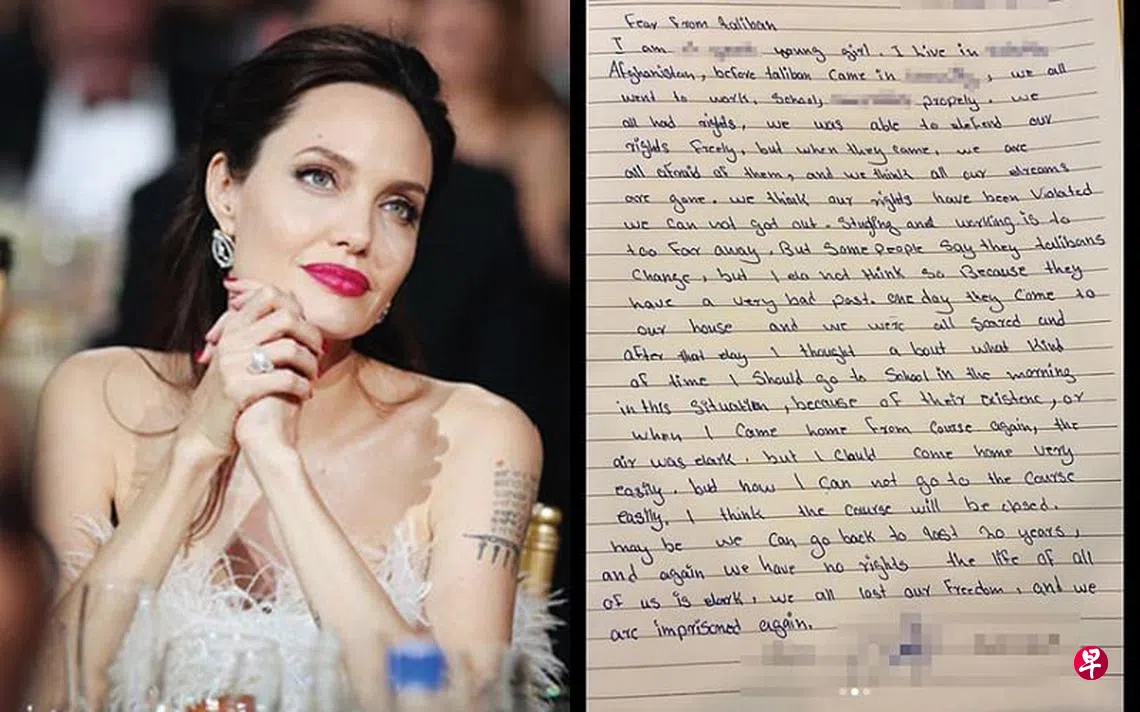 Fear from taliban
I am young girl. I live in
Afghanistan, before taliban came in , we all
went to work, School, propely. we
all had rights, we was able to defend our
rights freely, but when they came, we are
all afraid of them, and we think all our dreams
are gone. we think our rights have been Violated
we can not got out. Studing and working is to
too far away. But Some people Say they talibans
change, but I do not think so Because they
have a very bad past. one day they Come to
our house and we were all Scared and
after that day I thought a bout what Kind
of time I Should go to School in the morning
in this Situation, because of their existenc, or
when I Came home from Course again, the
air was dark. but I Could come home very
easily. but how I Can not go to the Course
easily. I think the Course will be closed.
may be we can go back to last 20 years,
and again we have no rights the life of all
of us is dark, we all lost our freedom, and we
are imprisoned again.
早